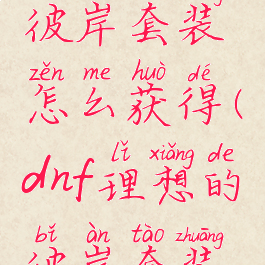 彼岸套装
zěn me huò dé
怎么获得(
lǐ xiǎng de
dnf理想的
bǐ àn tào zhuāng
彼岸套装